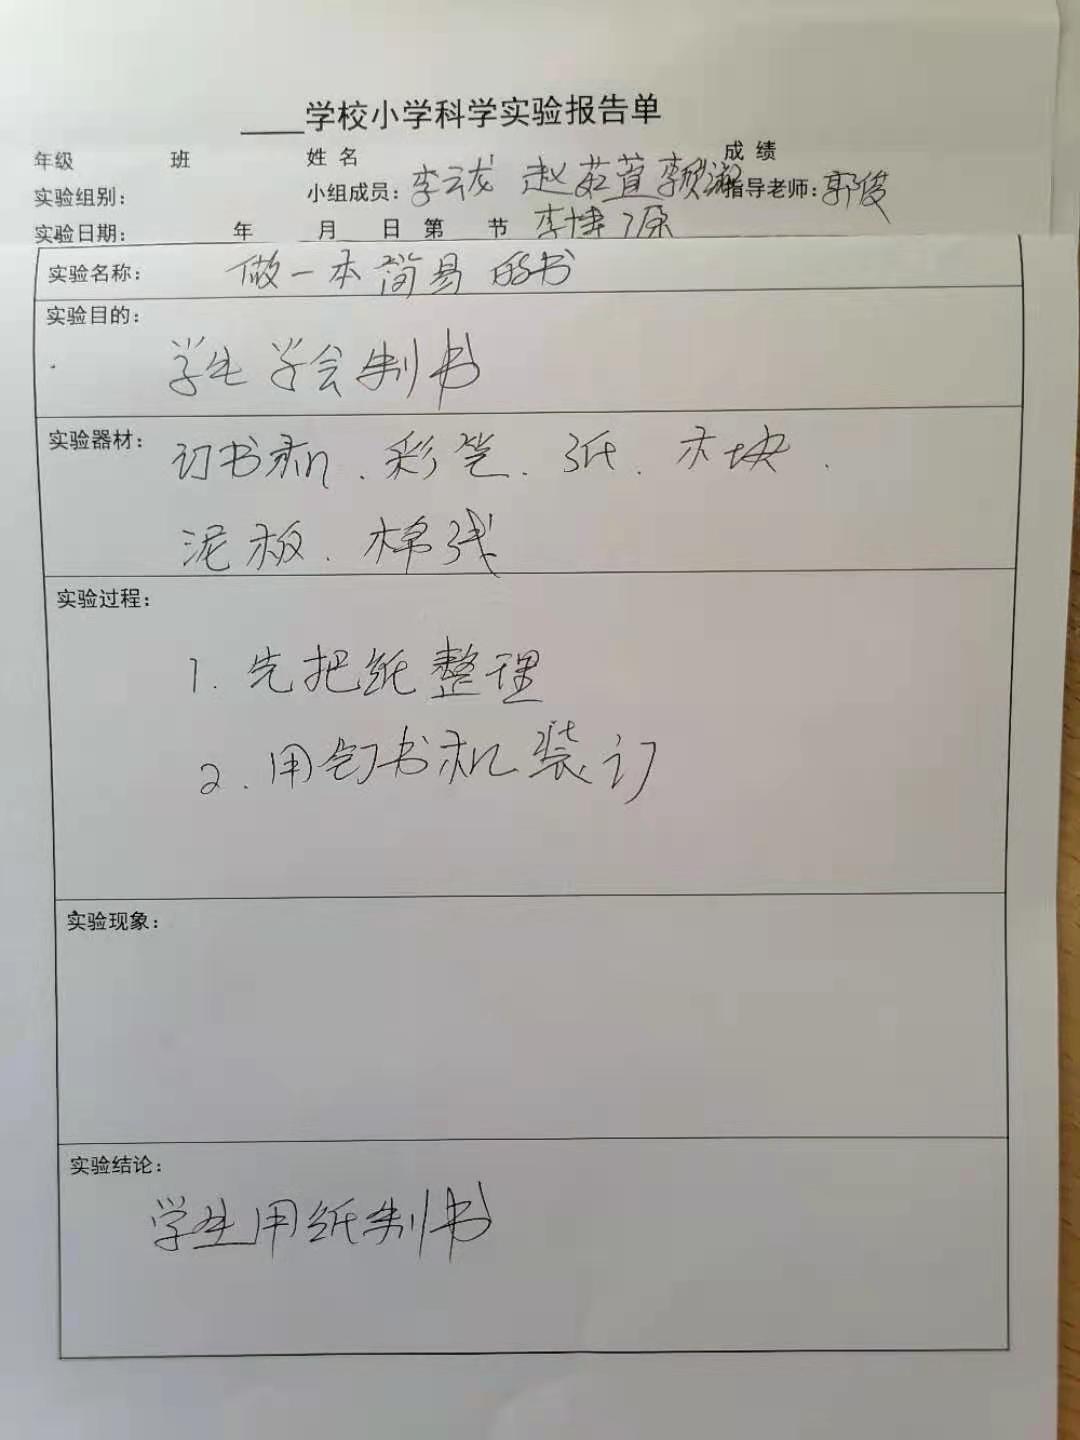 ____学校小学科学实验报告单
年级 班 姓 名 成 绩
实验组别： 小组成员：李云龙 赵茹萱 指导老师：郭俊
实验日期： 年 月 日 第 节 李博源
实验名称： 做一本简易的书
实验目的：
学生学会制书
实验器材： 订书机、彩笔、纸、木块、
泥板、棉线
实验过程：
1. 先把纸整理
2. 用钉书机装订
实验现象：
实验结论：
学生用纸制书